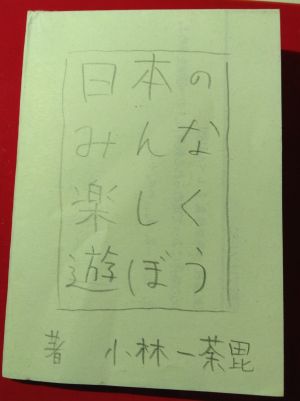 日本の
みんな
楽しく
遊ぼう
著 小林一茶毘